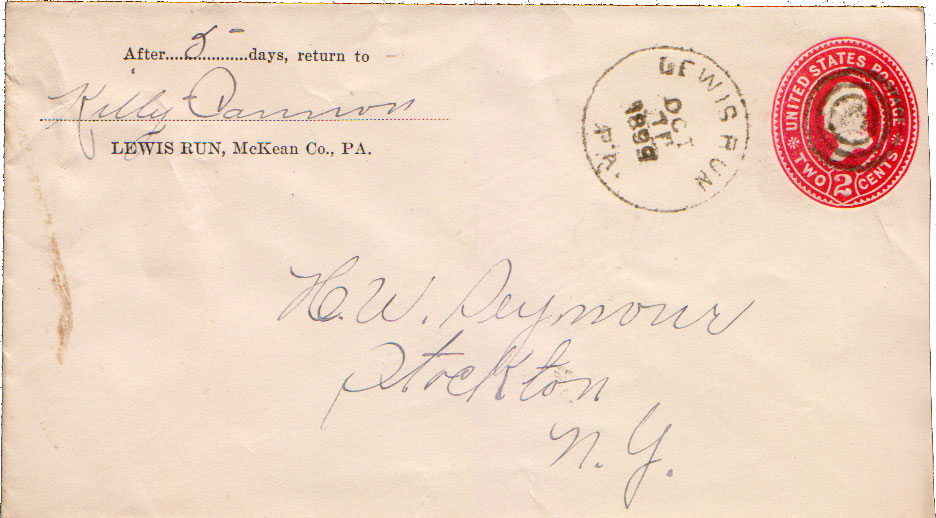 After 5 days, return to
Killy Cannon
LEWIS RUN, McKean Co., PA.
LEWIS RUN
OCT
1899
PA.
UNITED STATES POSTAGE
TWO 2 CENTS
H. W. Seymour
Stockton
N. Y.